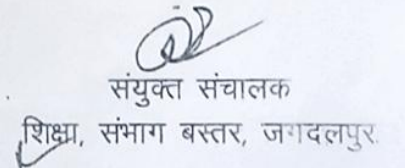 संयुक्त संचालक
शिक्षा, संभाग बस्तर, जगदलपुर